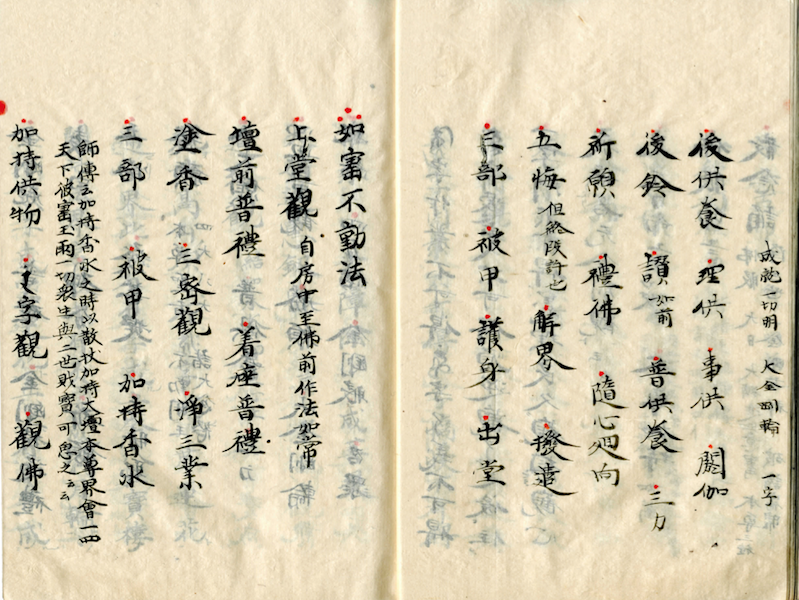 成就一切明 大金剛輪 一字
後供養 理供 事供 閼伽
後鈴 讃如前 普供養 三力
祈願 禮佛 隨心廻向
五悔但終段許也 解界 撥遣
三部 被甲護身 出堂
如寳不動法
上堂觀 自房中至佛前作法如常
壇前普禮 着座普禮
塗香 三密觀 淨三業
三部 被甲 加持香水
師傳云加持香水之時以散杖加持大壇本尊界會一四
天下彼寳玉雨一切衆生與二世財寳可思之云云
加持供物 字觀 觀佛